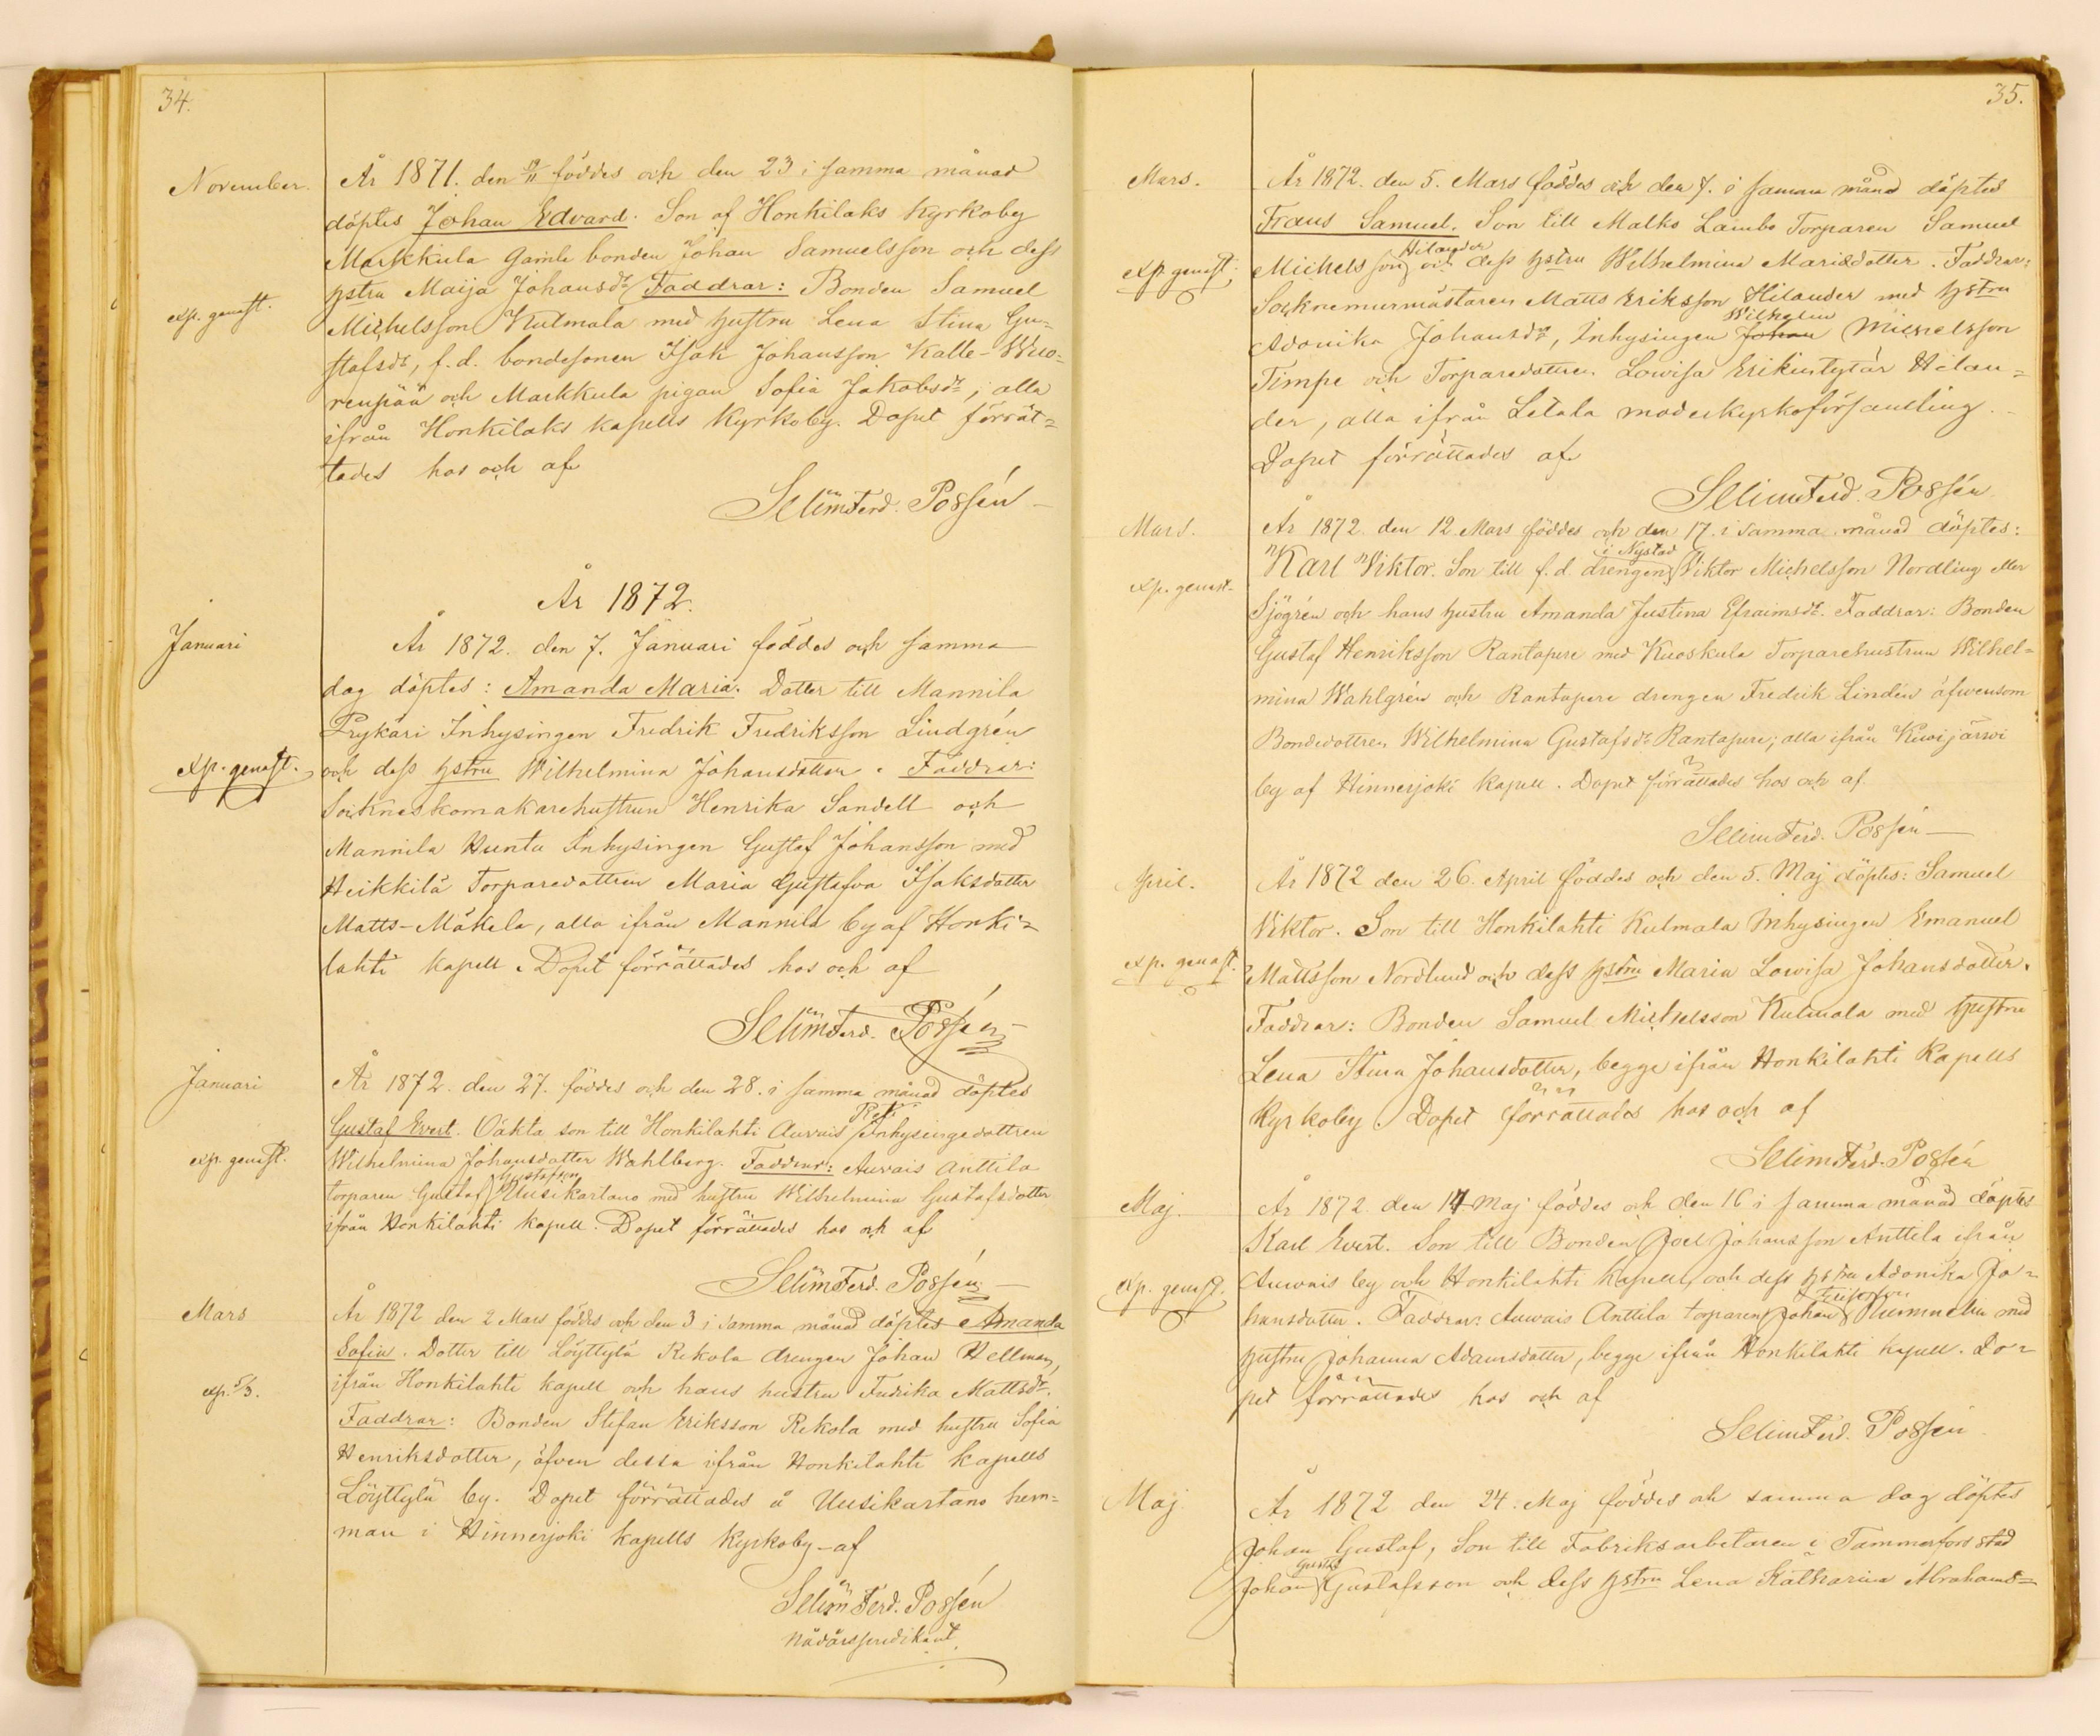 34.
November.
År 1871. den 19/11 föddes och den 23 i samma månad
döptes Johan Edvard. Son af Honkilaks Kyrkoby
Markkula Gamle bonden Johan Samuelsson och dess
hstru Maija Johansdr. Faddrar: Bonden Samuel
exp. genast.
Michelsson Kulmala med hustru Lena Stina Gu-
stafsdr, f.d. bondesonen Isak Johansson Kalle-Wuo-
renpää och Markkula pigan Sofia Jakobsdr, alla
ifrån Honkilaks kapells Kyrkoby. Dopet förrät-
tades hos och af
Selim Ferd. Possén
År 1872.
Januari
År 1872. den 7. Januari föddes och samma
dag döptes: Amanda Maria. Dotter till Mannila
Prykäri Inhysingen Fredrik Fredriksson Lindgrén
exp. genast.
och dess hstru Wilhelmina Johansdotter. Faddrar:
Sockneskomakarehustrun Henrika Sandell och
Mannila Huntu Inhysingen Gustaf Johansson med
Heikkilä Torparedottren Maria Gustafva Isaksdotter
Matts-Mäkela, alla ifrån Mannila by af Honki-
lahti kapell. Dopet förrättades hos och af
Selim Ferd. Possén
Januari
År 1872. den 27. föddes och den 28. i samma månad döptes
Gustaf Evert. Oäkta son till Honkilahti Auvais Inhysingedottren
exp. genast.
Wilhelmina Johansdotter Wahlberg. Faddrar: Auvais Anttila
torparen Gustaf Gustafsson Uusikartano med hustru Wilhelmina Gustafsdotter
ifrån Honkilahti kapell. Dopet förrättades hos och af
Selim Ferd. Possén
Mars
År 1872 den 2 Mars föddes och den 3 i samma månad döptes Amanda
Sofia. Dotter till Löyttylä Rekola drengen Johan Hellman,
exp. 5/3.
ifrån Honkilahti kapell och hans hustru Fredrika Mattsdr.
Faddrar: Bonden Stefan Eriksson Rekola med hustru Sofia
Henriksdotter, äfven dessa ifrån Honkilahti kapells
Löyttylä by. Dopet förrättades å Uusikartano hem-
man i Hinnerjoki kapells Kyrkoby - af
Selim Ferd. Possén
Nådårspredikant.
35.
Mars.
År 1872. den 5. Mars föddes och den 7. i samma månad döptes
Frans Samuel. Son till Malko Lambo Torparen Samuel
exp. genast.
Michelsson Hilander och dess hstru Wilhelmina Mariedotter. Faddrar:
Socknemurmästaren Matts Eriksson Hilander med hstru
Adonika Johansdr, Inhysingen Johan Wilhelm Michelsson
Timpe och Torparedottren Lowisa Erikintytär Hilan-
der, alla ifrån Letala moderkyrkoförsamling.
Dopet förrättades af
Selim Ferd. Possén
Mars.
År 1872. den 12. Mars föddes och den 17. i samma månad döptes:
Karl Viktor. Son till f.d. drengen i Nystad Viktor Michelsson Nordling eller
exp. genast.
Sjögrén och hans hustru Amanda Justina Efraimsdr. Faddrar: Bonden
Gustaf Henriksson Rantapere med Kuoskula Torparehustrun Wilhel-
mina Wahlgrén och Rantapere drengen Fredrik Lindén äfwensom
Bondedottren Wilhelmina Gustafsdr Rantapere; alla ifrån Kuoijärwi
by af Hinnerjoki kapell. Dopet förrättades hos och af
Selim Ferd. Possén
April.
År 1872 den 26. April föddes och den 5. Maj döptes: Samuel
Viktor. Son till Honkilahti Kulmala Inhysingen Emanuel
exp. genast.
Mattsson Nordlund och dess hstru Maria Lowisa Johansdotter.
Faddrar: Bonden Samuel Michelsson Kulmala med hustru
Lena Stina Johansdotter, begge ifrån Honkilahti Kapells
Kyrkoby. Dopet förrättades hos och af
Selim Ferd. Possén
Maj.
År 1872 den 14 Maj föddes och den 16 i samma månad döptes
Karl Evert. Son till Bonden Joel Johansson Anttila ifrån
exp. genast.
Auwais by och Honkilahti kapell, och dess hstru Adonika Jo-
hansdotter. Faddrar: Auwais Anttila torparen Johan Nummelin med
hustru Johanna Adamsdotter, begge ifrån Honkilahti kapell. Do-
pet förrättades hos och af
Selim Ferd. Possén
Maj
År 1872 den 24. Maj föddes och samma dag döptes
Johan Gustaf, Son till Fabriksarbetaren i Tammerfors stad
Johan Gustaf Gustafsson och dess hstru Lena Katharina Abrahams-